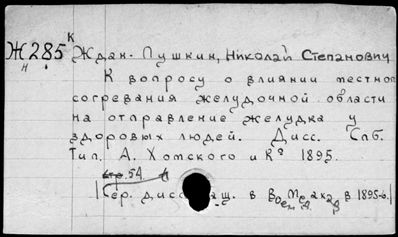 К
Ж 285 Ждан-Пушкин, Николай Степанович
н
К вопросу о влиянии местного
согревания желудочной области
на отправление желудка у
здоровых людей. Дисс. Спб.
Тип. А. Хомского и К° 1895.
стр. 54.
Сер. дисс. в Воен. Мед. ак. в 1895-6.